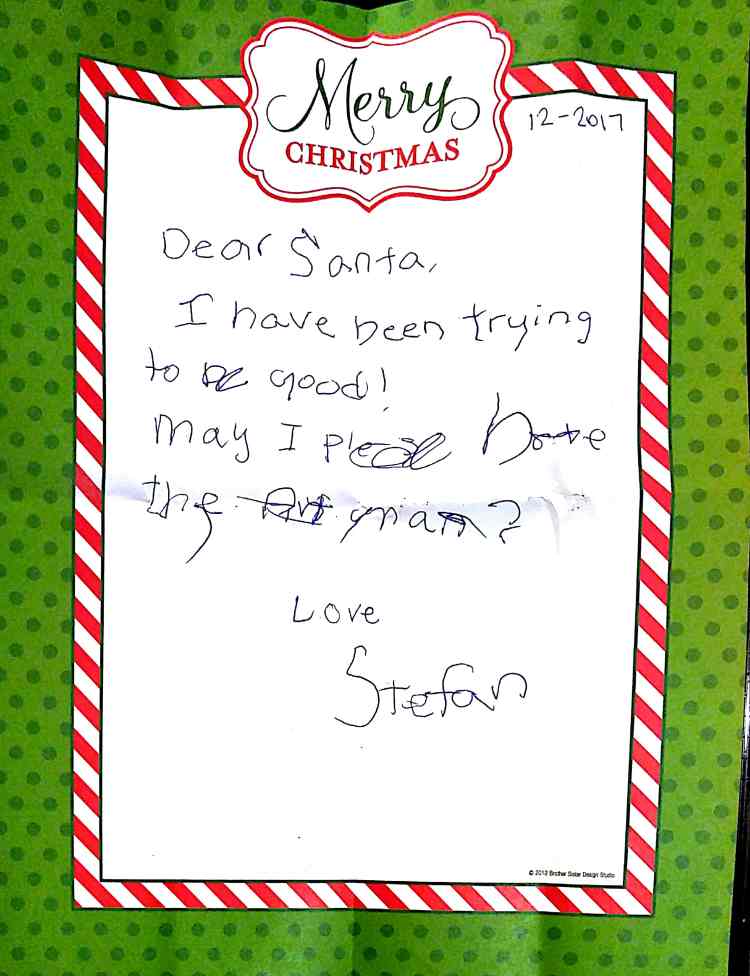 Merry
CHRISTMAS
12-2017
Dear Santa,
I have been trying
to be good!
May I please have
the ?
Love
Stefan
© 2013 Brother Sister Design Studio